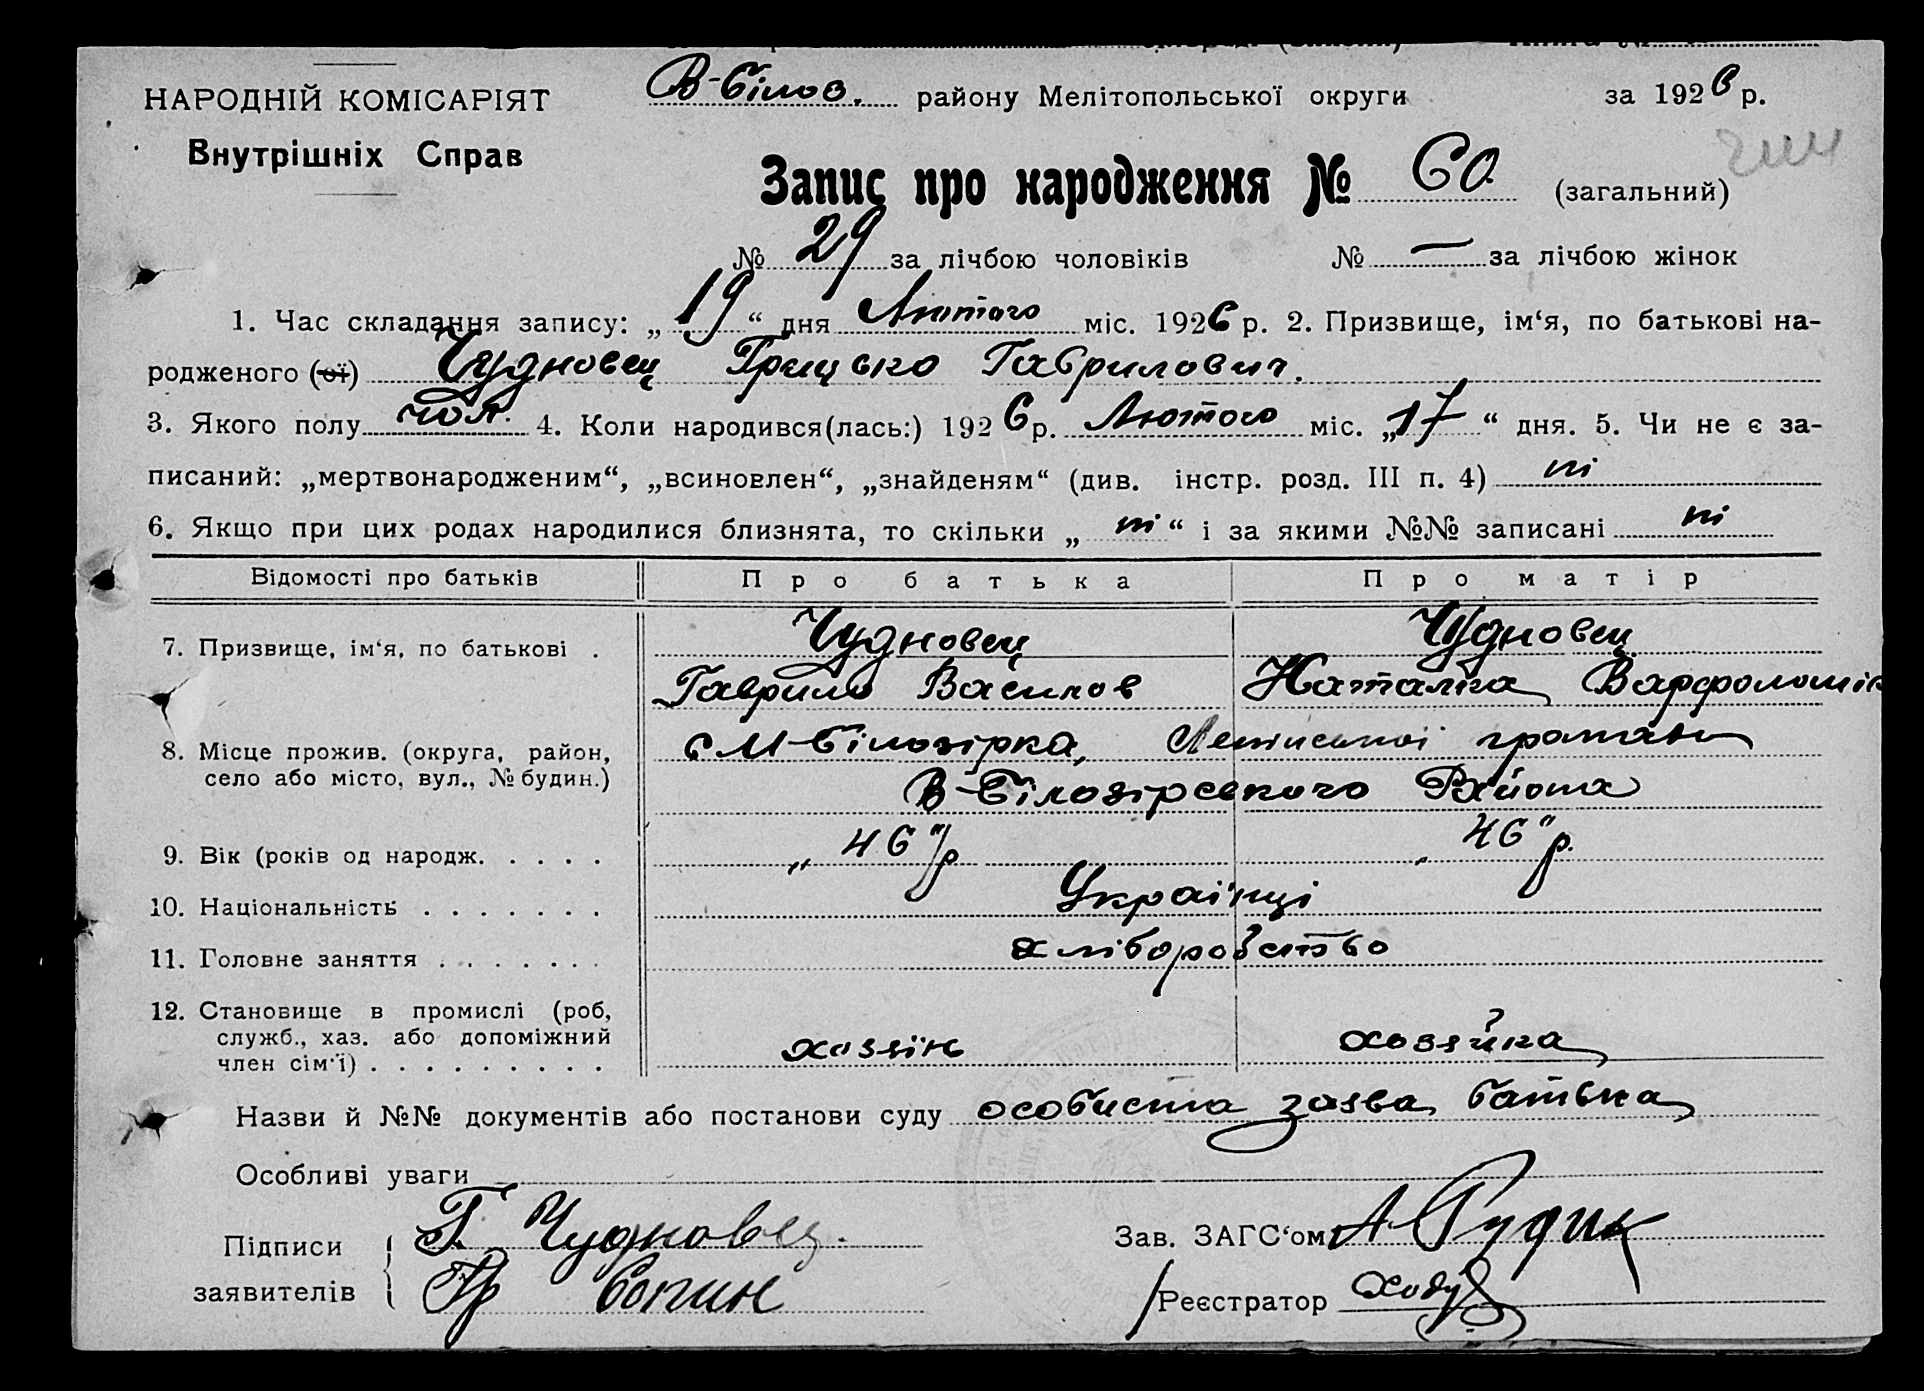 В-Білоз. району Мелітопольської округи за 1926 р.
НАРОДНІЙ КОМІСАРІЯТ
Внутрішніх Справ
Запис про народження № 60 (загальний)
№ 29 за лічбою чоловіків № — за лічбою жінок
1. Час складання запису: „19“ дня Лютого міс. 1926 р. 2. Призвище, ім‘я, по батькові на-
родженого (ої) Чудновец Грицько Гаврилович.
3. Якого полу чол. 4. Коли народився(лась:) 1926 р. Лютого міс. „17“ дня. 5. Чи не є за-
писаний: „мертвонародженим“, „всиновлен“, „знайденям“ (див. інстр. розд. III п. 4) ні
6. Якщо при цих родах народилися близнята, то скільки „ні“ і за якими №№ записані ні
Відомості про батьків Про батька Про матір
7. Призвище, ім‘я, по батькові . Чудновец Чудновец
Гаврило Василов Наталка Варфоломіє
8. Місце прожив. (округа, район, с М-Білозірка, Ленінської громади
село або місто, вул., № будин.) В-Білозірського Района
9. Вік (років од народж. . . . . „46“ р „46“ р.
10. Національність . . . . . . . Українці
11. Головне заняття . . . . . . . хліборобство
12. Становище в промислі (роб,
служб., хаз. або допоміжний хозяїн хозяйка
член сім‘ї) . . . . . . . . .
Назви й №№ документів або постанови суду особиста заява батька
Особливі уваги —
Підписи Г. Чудновец. Зав. ЗАГС‘ом А Рудик
заявителів Гр Реєстратор